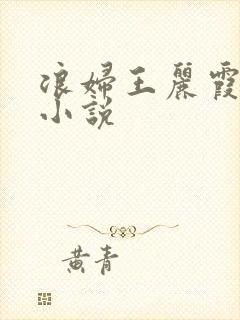 浪婦王麗霞
小說
黃青